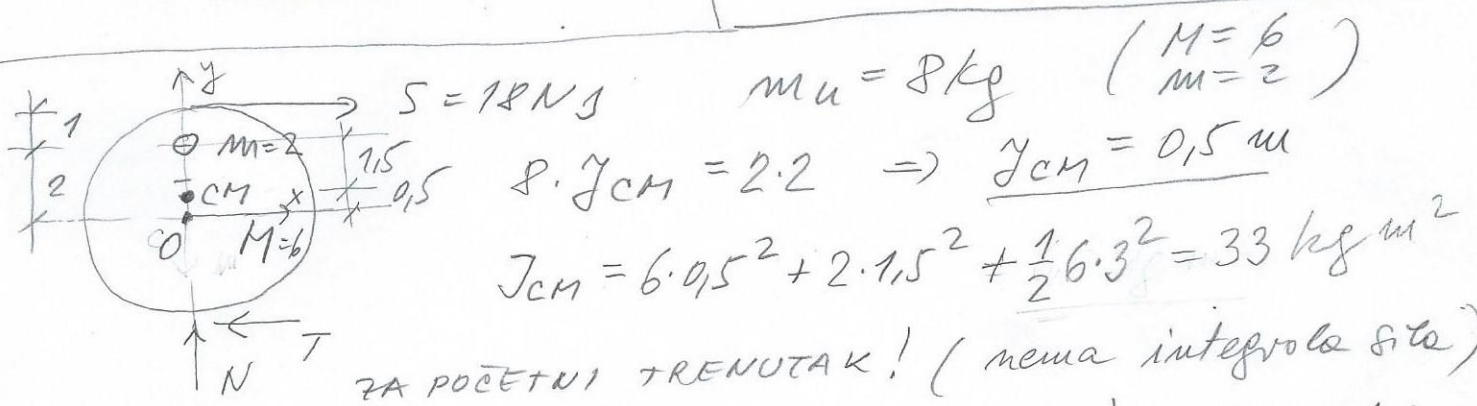 y
1
2
m=2
CM
x
O
M=6
1,5
0,5
T
N
S = 18 Ns
m_u = 8 kg
( M = 6
m = 2 )
8 · y_CM = 2·2 ⇒ y_CM = 0,5 m
J_CM = 6·0,5² + 2·1,5² + 1/2 6·3² = 33 kg m²
ZA POČETNI TRENUTAK! (nema integrala sila)